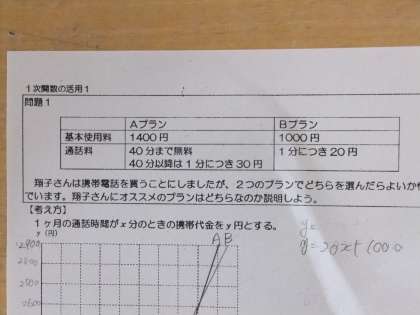 1次関数の活用1
問題1
Aプラン Bプラン
基本使用料 1400円 1000円
通話料 40分まで無料 1分につき20円
40分以降は1分につき30円
翔子さんは携帯電話を買うことにしましたが、2つのプランでどちらを選んだらよいか
でいます。翔子さんにオススメのプランはどちらなのか説明しよう。
【考え方】
1ヶ月の通話時間がx分のときの携帯代金をy円とする。
y（円）
A B
y=
y=20x+1000
2900
2800
2700
2600